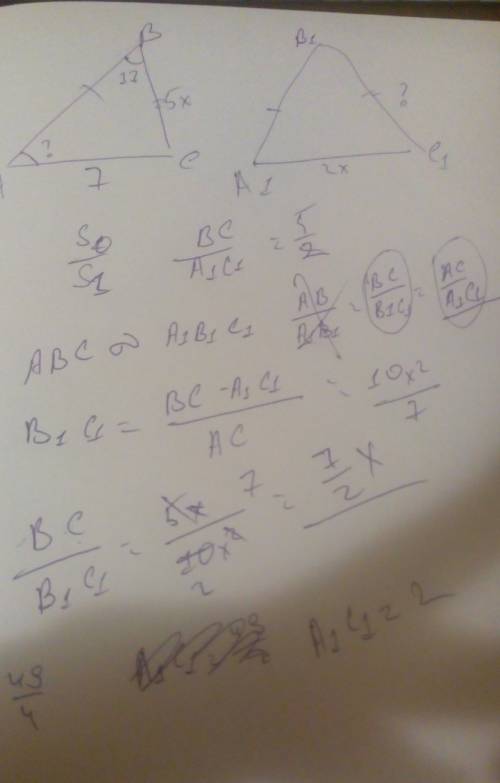 B B1
11 5x ?
? 
7 C A1 2x C1
S0/S1 BC/A1C1 = 5/2
ABC ∾ A1B1C1 AB/A1B1 = BC/B1C1 = AC/A1C1
B1C1 = BC · A1C1/AC = 10x²/7
BC/B1C1 = 5x 7/10x² 2 = 7/2 x
49/4 A1C1 = 2